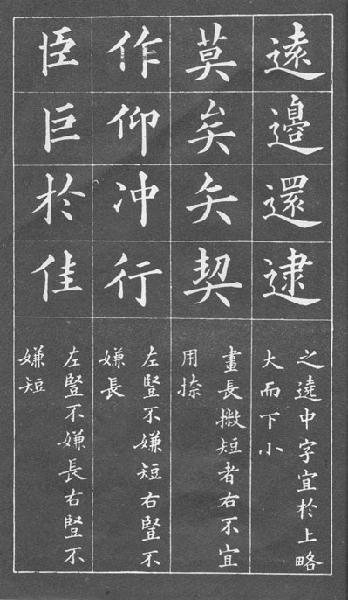 遠邊還逮
之遶中字宜於上略
大而下小
莫矣矢契
畫長撇短者右不宜
用捺
作仰冲行
左豎不嫌短右豎不
嫌長
巨於佳
左豎不嫌長右豎不
嫌短